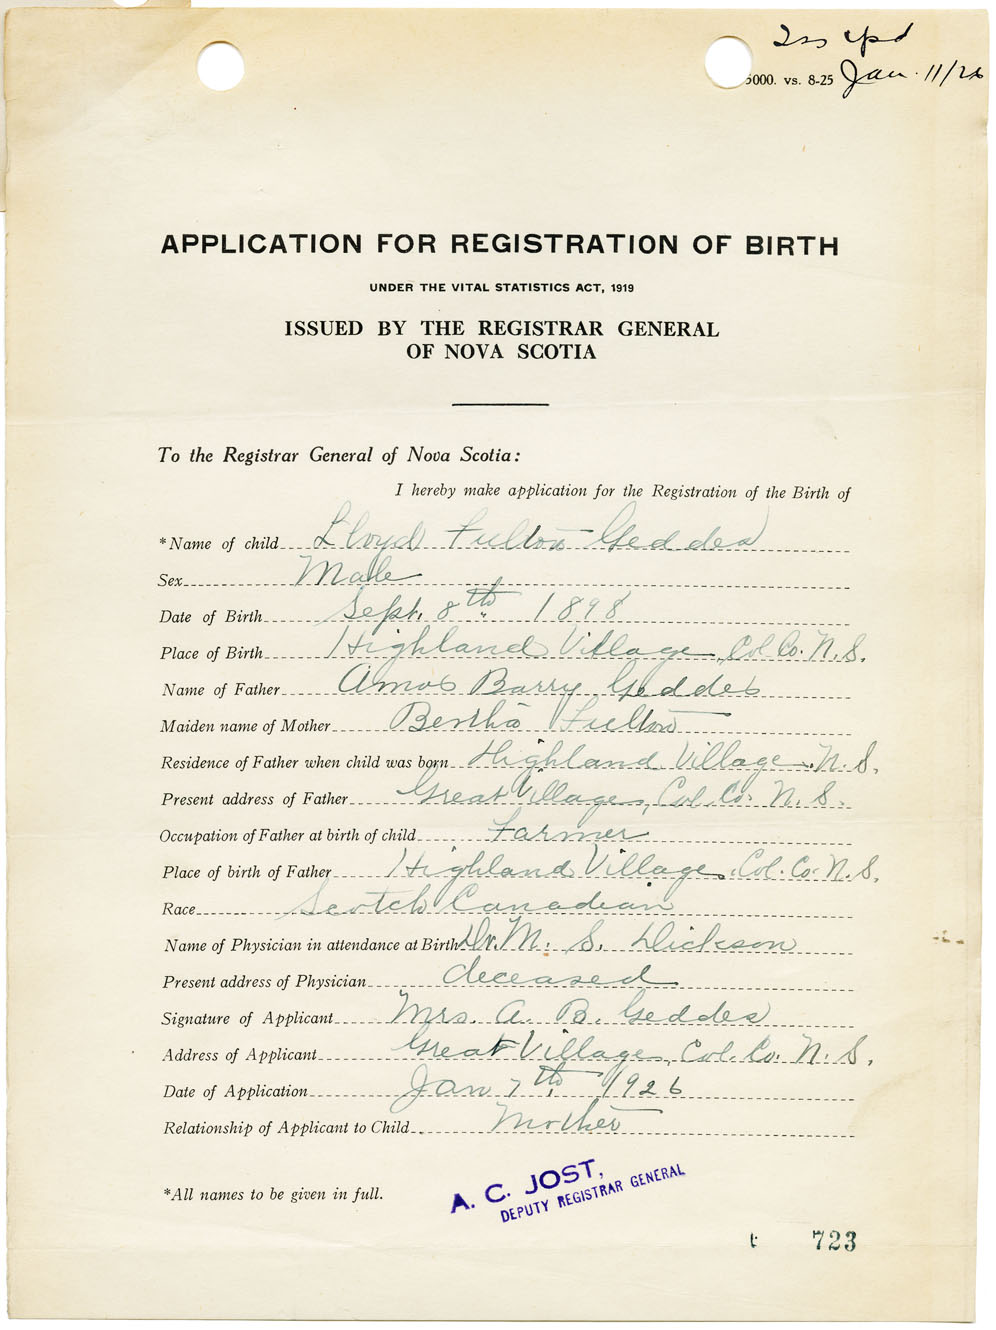 5000. vs. 8-25 Jan. 11/26
APPLICATION FOR REGISTRATION OF BIRTH
UNDER THE VITAL STATISTICS ACT, 1919
ISSUED BY THE REGISTRAR GENERAL
OF NOVA SCOTIA
To the Registrar General of Nova Scotia:
I hereby make application for the Registration of the Birth of
*Name of child Lloyd Fulton Geddes
Sex Male
Date of Birth Sept. 8th 1898
Place of Birth Highland Village, Col. Co. N. S.
Name of Father Amos Barry Geddes
Maiden name of Mother Bertha Fulton
Residence of Father when child was born Highland Village, N. S.
Present address of Father Great Village, Col. Co. N. S.
Occupation of Father at birth of child Farmer
Place of birth of Father Highland Village, Col. Co. N. S.
Race Scotch Canadian
Name of Physician in attendance at Birth Dr. M. S. Dickson
Present address of Physician deceased
Signature of Applicant Mrs. A. B. Geddes
Address of Applicant Great Village, Col. Co. N. S.
Date of Application Jan 7th, 1926
Relationship of Applicant to Child Mother
*All names to be given in full.
A. C. JOST,
DEPUTY REGISTRAR GENERAL
723